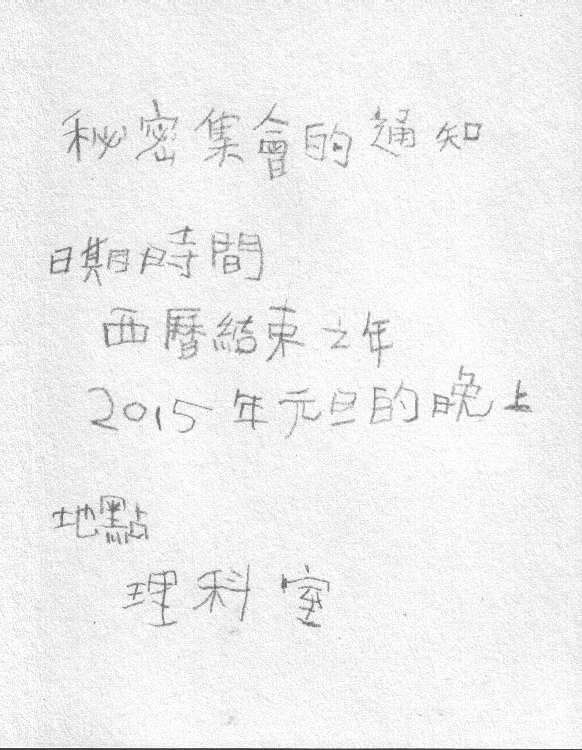 秘密集會的通知
日期時間
西曆結束之年
2015年元旦的晚上
地點
理科室